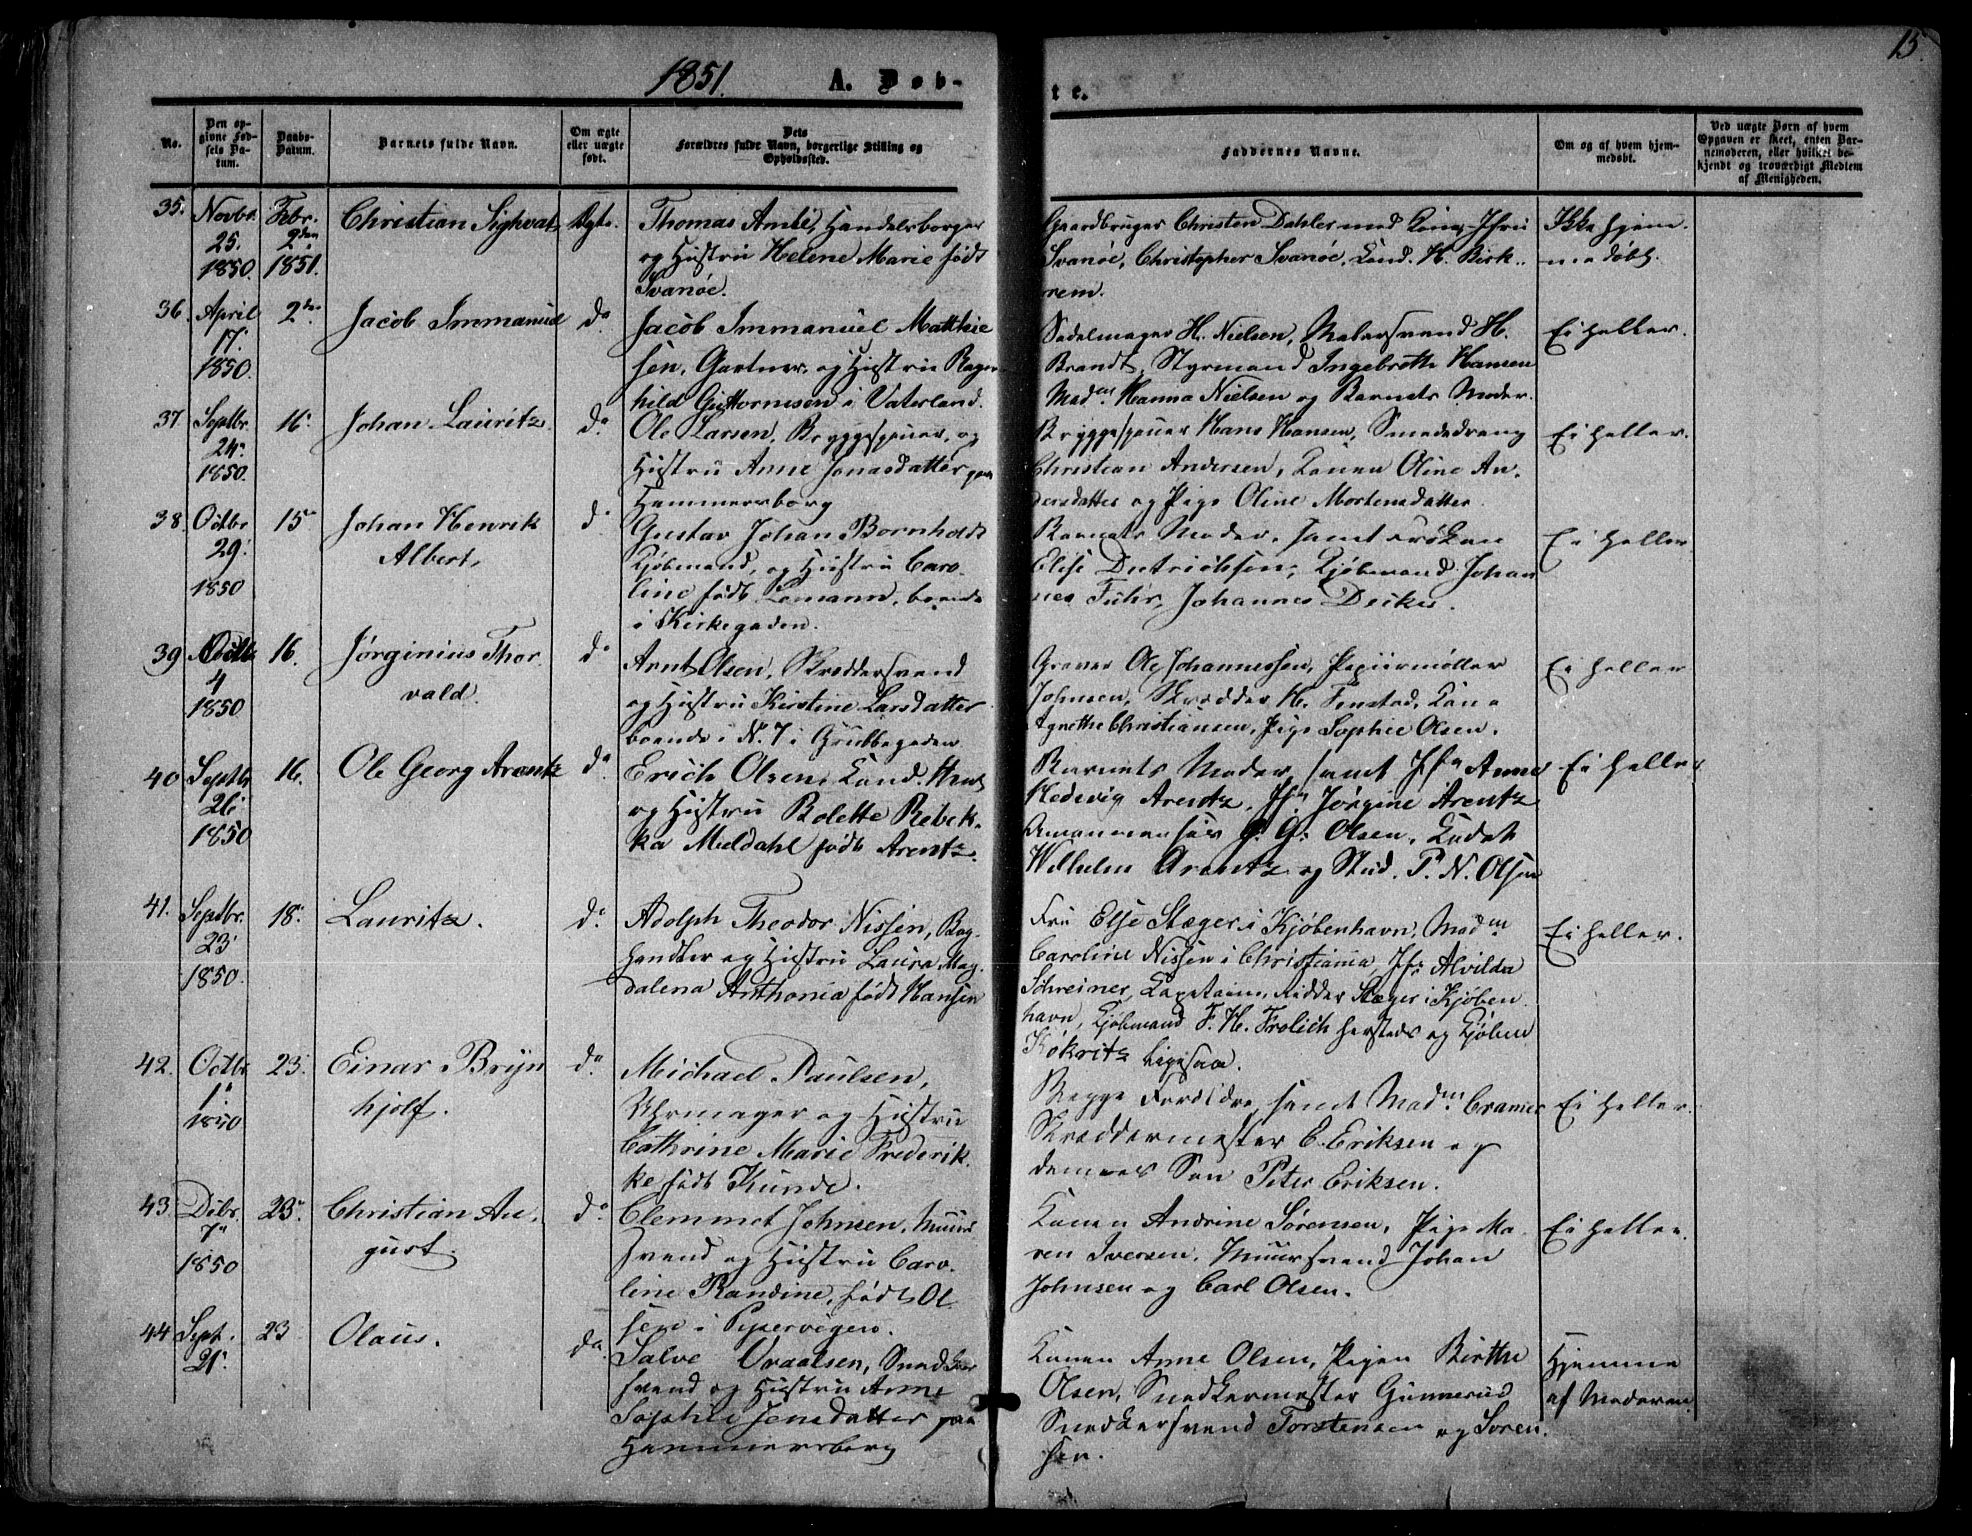 1851. A. Døb-
te.
15.
No.
Den op-
givne Fød-
sels Da-
tum.
Daabs-
Datum.
Barnets fulde Navn.
Om ægte
eller uægte
født.
Dets
Forældres fulde Navn, borgerlige Stilling og
Opholdssted.
Faddernes Navne.
Om og af hvem hjem-
medøbt.
Ved uægte Børn af hvem
Opgaven er skeet, enten Bar-
nemoderen, eller hvilket be-
kjendt og troværdigt Medlem
af Menigheden.
35.
Novbr.
25.
1850.
Febr.
2den
1851.
Christian Sighvat
Ægte.
Thomas Amlie, Handelsborger
og Hustru Helene Marie født
Svanøe.
Gaardbruger Christen Dahler med Kone, Jfru
Svanøe, Christopher Svanøe, Cand. H. Birk-
rem.
Ikke hjem-
medøbt.
36.
April
17.
1850.
2den
Jacob Immanuel
do
Jacob Immanuel Mathie
sen, Gartner, og Hustru Ragn
hild Guttormsen i Vaterland.
Sadelmager H. Nielsen, Malersvend H.
Brandt, Styrmand Ingebreth Hansen
Madm Hanna Nielsen og Barnets Moder.
Ei heller.
37.
Septbr.
24.
1850.
16.
Johan Lauritz.
do
Ole Larsen, Bryggespener, og
Hustru Anne Jonasdatter paa
Hammersborg
Bryggespener Hans Hansen, Smededreng
Christian Andersen, Konen Oline An-
dersdatter og Pige Oline Mortensdatter
Ei heller.
38.
Octbr
29.
1850
15
Johan Henrik
Albert,
do
Gustav Johan Bornholdt
Kjøbmand, og Hustru Caro-
line født Lemann, boende
i Kirkegaden.
Barnets Moder, samt Frøken
Elise Dietrichsen, Kjøbmand Johan
nes Fuhr, Johannes Deikes.
Ei heller.
39
Octbr
4
1850
16.
Jørginius Thor
vald.
do
Arnt Olsen, Skræddersvend
og Hustru Kirstine Larsdatter
boende i N. 7 i Grubbegaden
Graver Ole Johannessen, Papiirmøller
Johnsen, Skrædder H. Fenstad, Kone
Agnethe Christiansen, Pige Sophie Olsen.
Ei heller
40
Septbr
26.
1850
16.
Ole Georg Arentz
do
Erich Olsen, Cand.
og Hustru Bolette Rebek-
ka Meldahl født Arentz.
Barnets Moder, samt Jfr Anne
Hedevig Arentz, Jfr Jørgine Arentz
Amanuensis G. G. Olsen, Kadet
Wilhelm Arentz og Stud. P. N. Olsen
Ei heller
41.
Septbr.
23.
1850.
18.
Lauritz.
do
Adolph Theodor Nissen, Bog-
handler og Hustru Laura Mag-
dalena Anthonia født Hansen
Fru Else Stæger i Kjøbenhavn, Madm
Caroline Nissen i Christiania, Jfr Alvilda
Schreiner, Capetaine, Ridder Stæger i Kjøben
havn, Kjøbmand F. H. Frolich hersteds og Kjøbm
Køkritz
Ei heller.
42.
Octbr
1.
1850
23.
Einar Bryn
hjolf.
do
Michael Paulsen,
Uhrmager og Hustru
Cathrine Marie Frederik-
ke født Kunde.
Begge Forældre, samt Madm Cramer
Skræddermester E. Eriksen og
dennes Søn Peter Eriksen.
Ei heller.
43.
Dcbr.
7
1850
23.
Christian Au-
gust.
do
Clemmet Johnsen, Muur
svend og Hustru Caro-
line Randine, født Ol
sen i Pipervigen.
Konen Andrine Sørensen, Pige Ma-
ren Iversen, Muursvend Johan
Johnsen og Carl Olsen.
Ei heller.
44
Sept.
21.
23
Olaus.
do
Salve Oraalsen, Snedker
svend og Hustru Anne
Sophie Jensdatter paa
Hammersborg
Konen Anne Olsen, Pigen Birthe
Olsen, Snedkermester Gunnerud
Snedkersvend Torstensen og Soren
sen.
Hjemme
af Moderen.